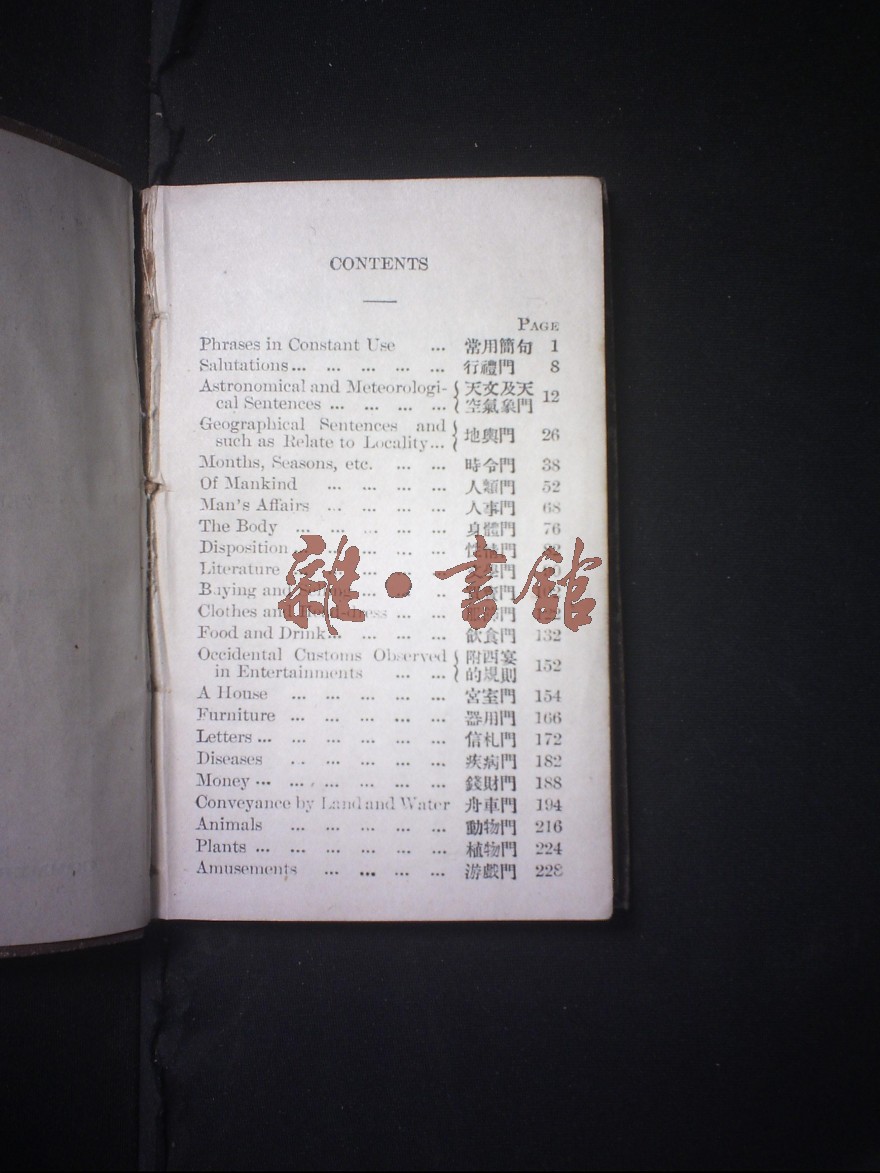 CONTENTS
PAGE
Phrases in Constant Use ... 常用簡句 1
Salutations ... ... ... ... ... 行禮門 8
Astronomical and Meteorologi- 天文及天
cal Sentences ... ... ... ... 空氣象門 12
Geographical Sentences and
such as Relate to Locality... 地輿門 26
Months, Seasons, etc. ... ... 時令門 38
Of Mankind ... ... ... ... 人類門 52
Man's Affairs ... ... ... ... 人事門 68
The Body ... ... ... ... ... 身體門 76
Disposition ... ... ... ... 門
Literature ... ... ... 門
Buying and Selling ... ...
Clothes and Head-dress ... ... 門
Food and Drink... ... ... ... 飲食門 132
Occidental Customs Observed 附西宴
in Entertainments ... ... 的規則 152
A House ... ... ... ... ... 宮室門 154
Furniture ... ... ... ... ... 器用門 166
Letters ... ... ... ... ... ... 信札門 172
Diseases ... ... ... ... ... 疾病門 182
Money ... ... ... ... ... ... 錢財門 188
Conveyance by Land and Water 舟車門 194
Animals ... ... ... ... ... 動物門 216
Plants ... ... ... ... ... ... 植物門 224
Amusements ... ... ... ... 游戲門 228
雜·書館